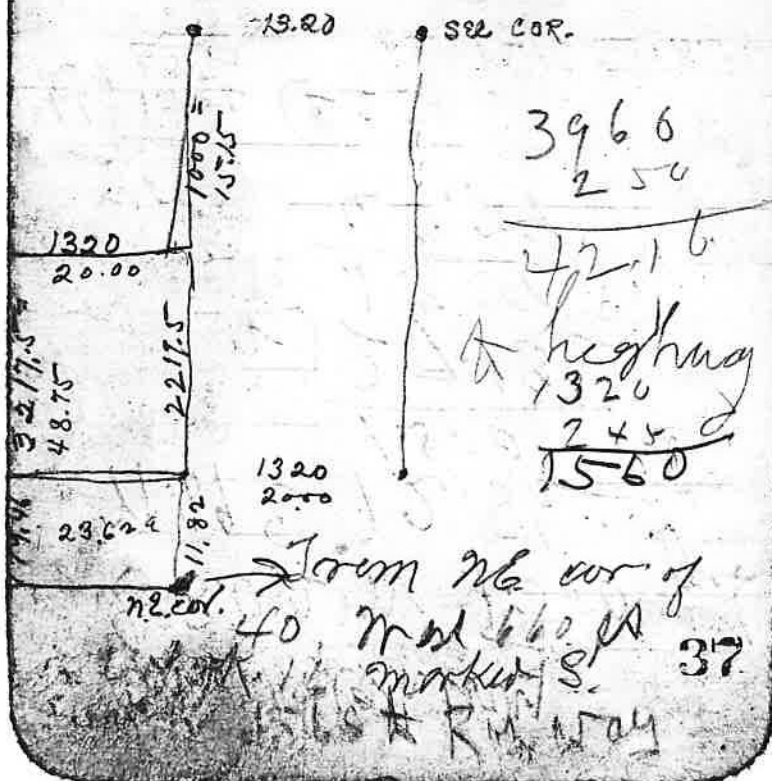 13.20
SE2 COR.
1000 =
15.15
3966
250
4216
1320
20.00
3217.5 =
48.75
2217.5
to highway
1320
245
1560
1320
20.00
23.62 a
11.82
N.E. cor.
From NE cor of
40 West 660 ft
marked S.
37
1565 to R
way